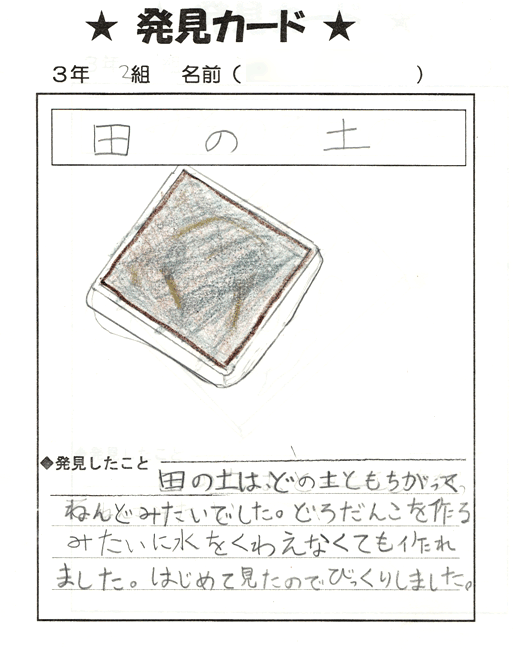 ★ 発見カード ★
3年 2組 名前( )
田の土
◆発見したこと
田の土は、どの土ともちがって、
ねんどみたいでした。どろだんごを作る
みたいに水をくわえなくても作れ
ました。はじめて見たのでびっくりしました。